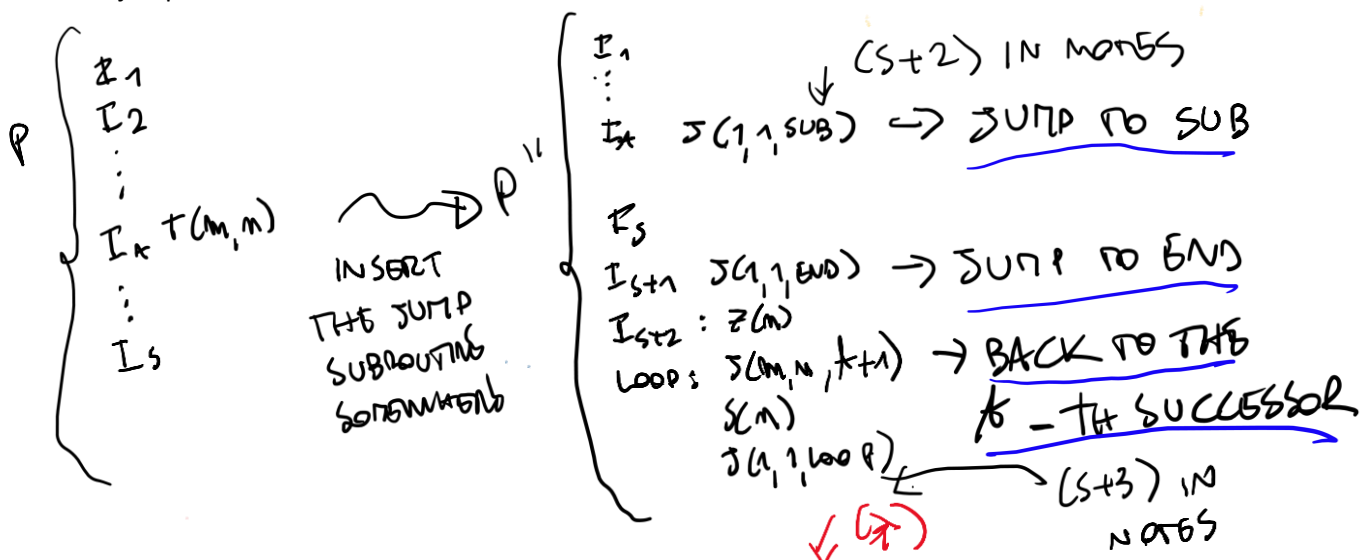 P
I1
I2
⋮
It T(m,n)
⋮
Is
INSERT
THE JUMP
SUBROUTINE
SOMEWHERE
P''
I1
⋮
(s+2) IN NOTES
It J(1,1,SUB) -> JUMP TO SUB
Is
Is+1 J(1,1,END) -> JUMP TO END
Is+2 : Z(n)
LOOP: J(m,n,t+1) -> BACK TO THE
t-TH SUCCESSOR
S(n)
J(1,1,LOOP)
(s+3) IN
NOTES
(*)